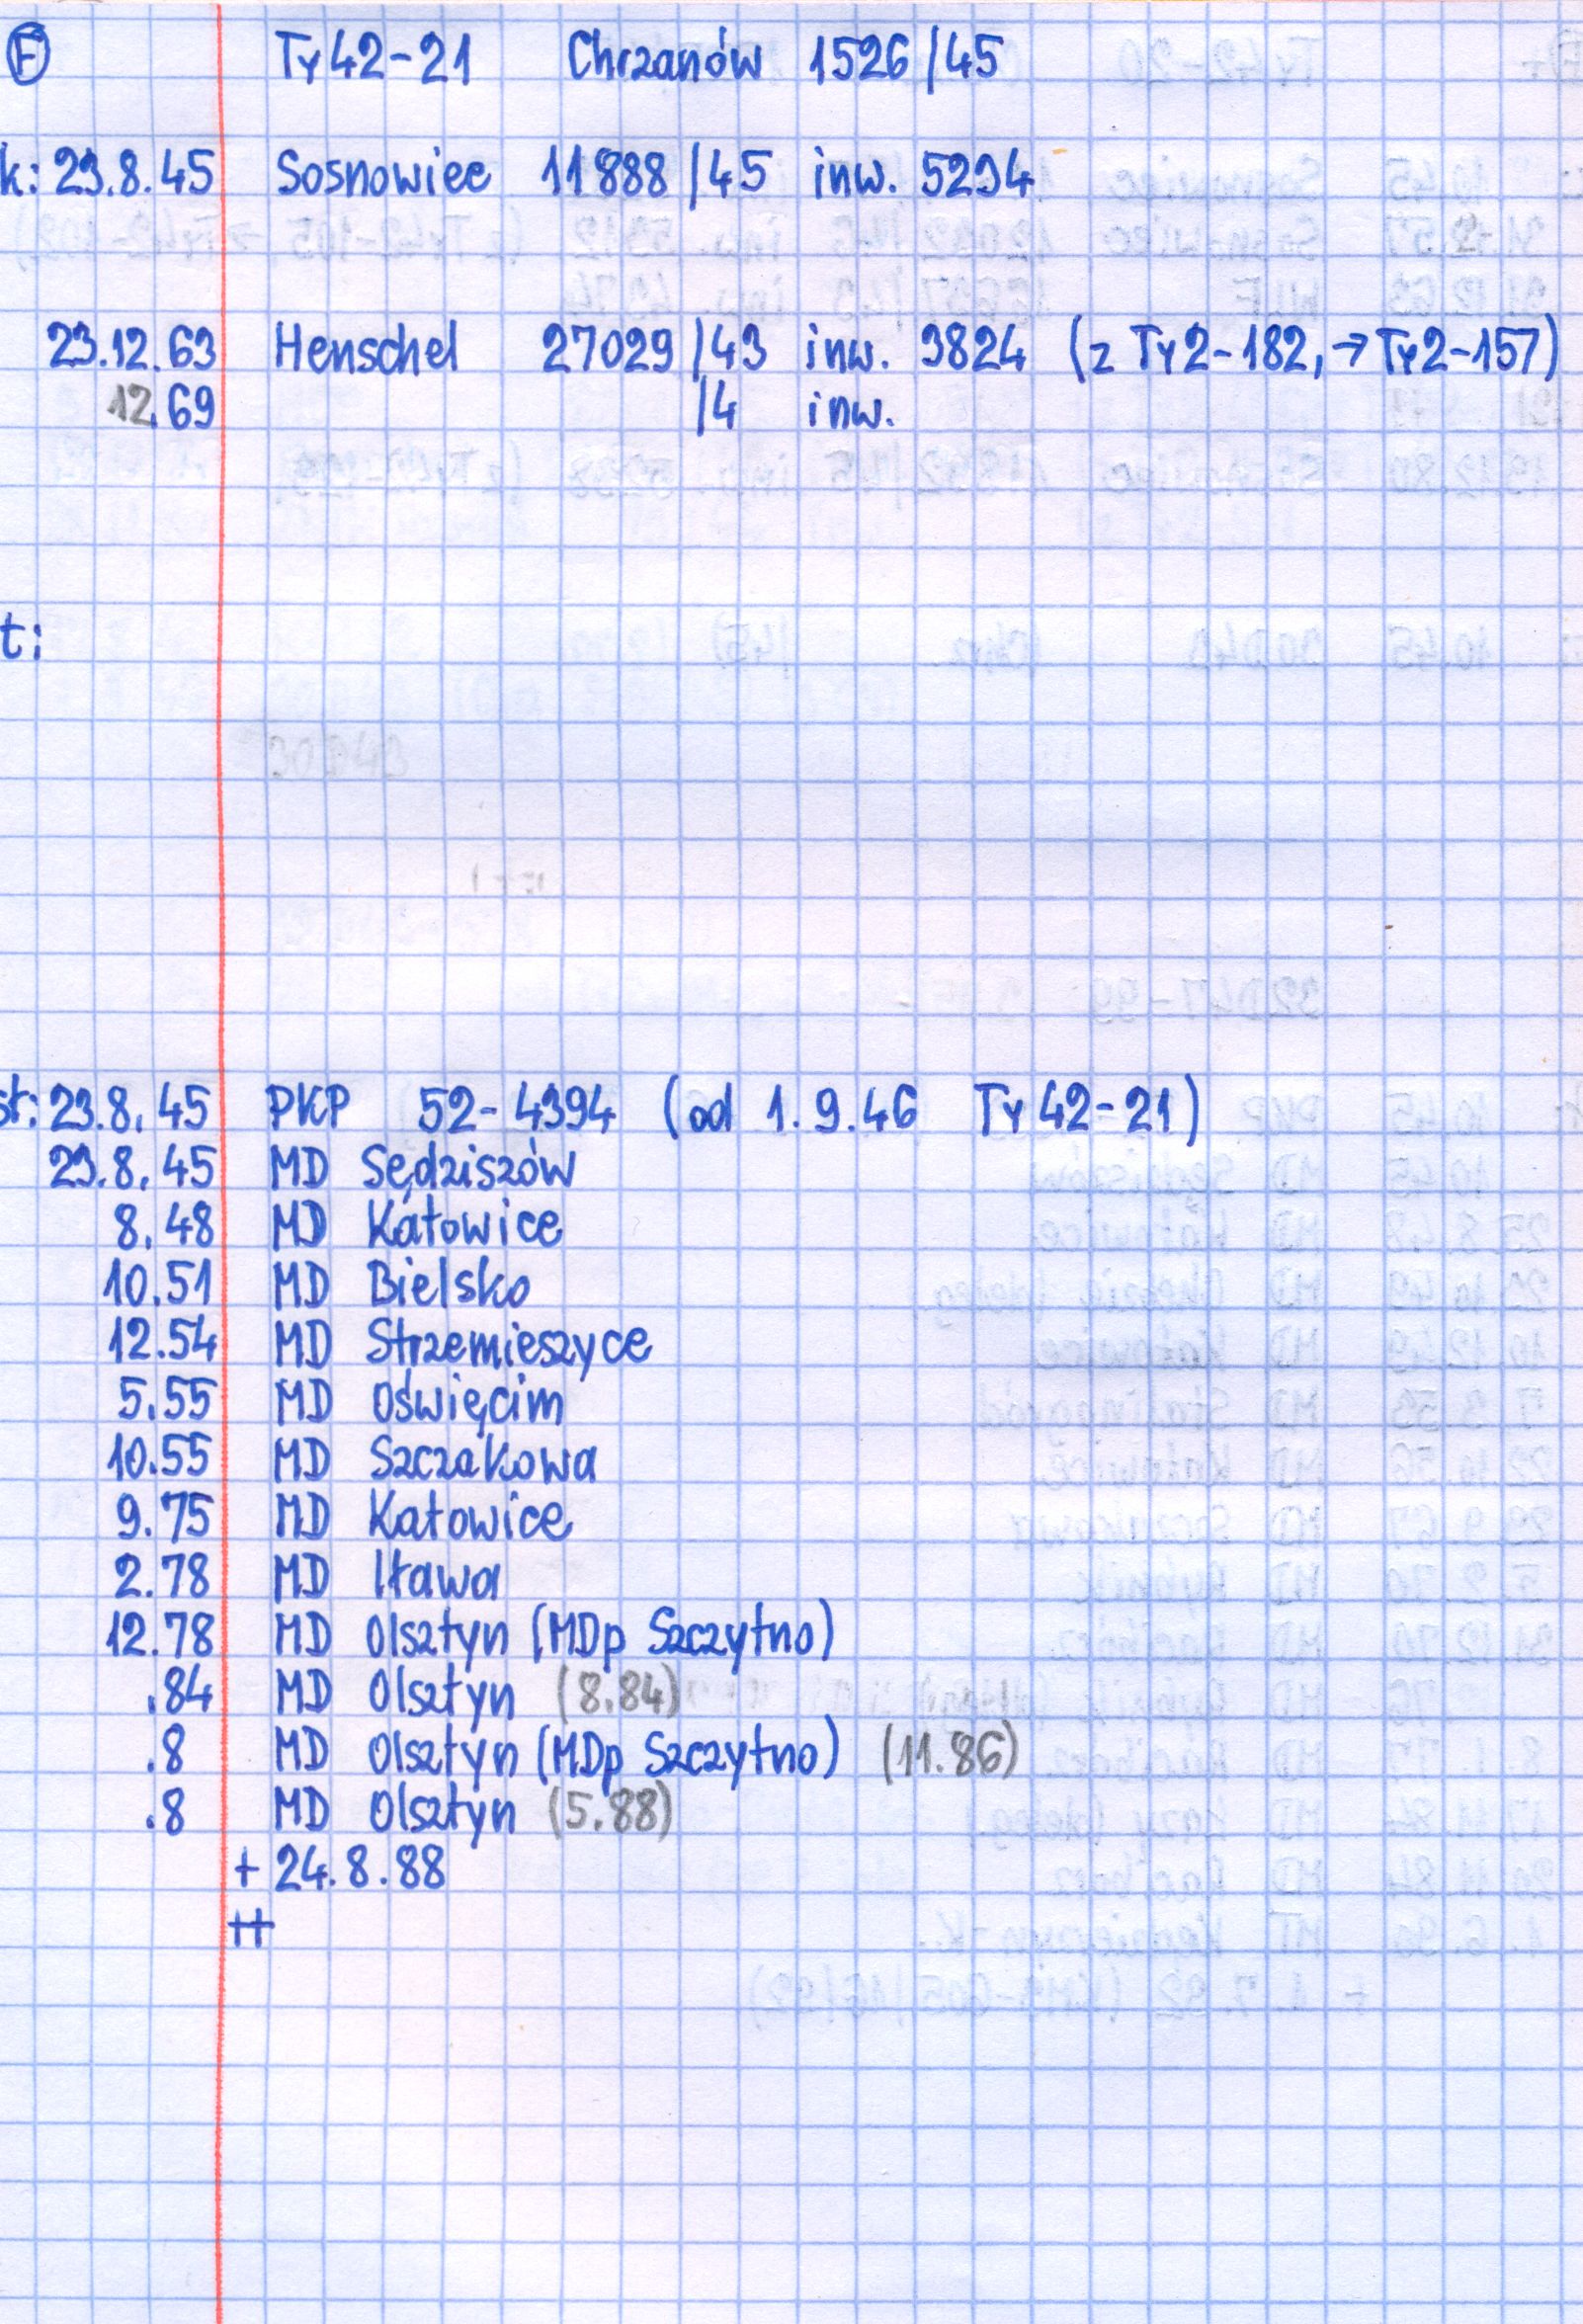 F Ty42-21 Chrzanów 1526/45
k: 23.8.45 Sosnowiec 11888/45 inw. 5294
23.12.63 Henschel 27029/43 inw. 3824 (z Ty2-182, → Ty2-157)
12.69 /4 inw.
t:
st: 23.8.45 PKP 52-4394 (od 1.9.46 Ty42-21)
23.8.45 MD Sędziszów
8.48 MD Katowice
10.51 MD Bielsko
12.54 MD Strzemieszyce
5.55 MD Oświęcim
10.55 MD Szczakowa
9.75 MD Katowice
2.78 MD Iława
12.78 MD Olsztyn (MDp Szczytno)
.84 MD Olsztyn (8.84)
.8 MD Olsztyn (MDp Szczytno) (11.86)
.8 MD Olsztyn (5.88)
+ 24.8.88
++